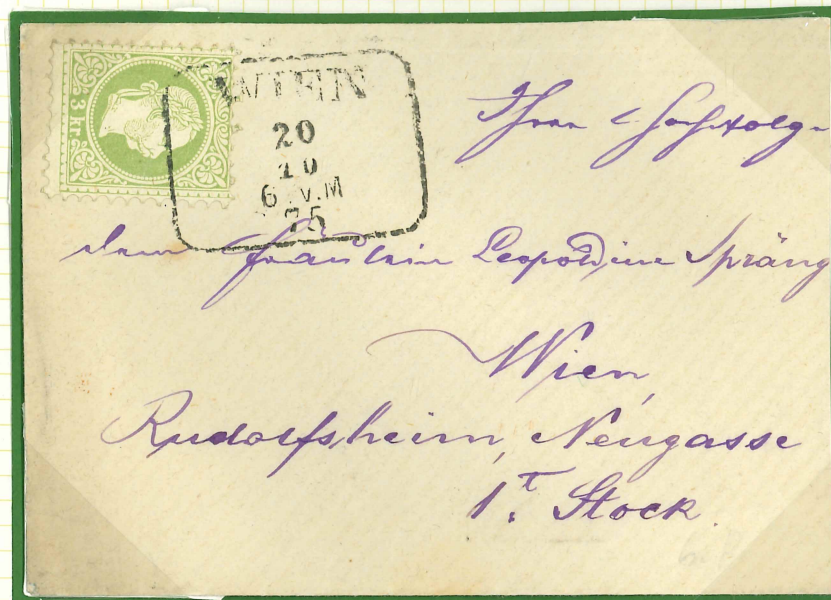 3 kr.
WIEN
20
10
6 . V. M
75
Ihrer Hochwolg-
dem Fräulein Leopoldine Spräng
Wien,
Rudolfsheim, Neugasse
1.T Stock.